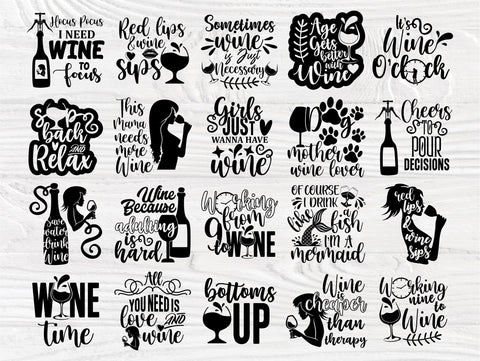 Hocus Pocus
I NEED
WINE
to
focus
Red lips
& wine
sips
Sometimes
wine
is Just
Necessary
Age
Gets
better
with
Wine
It's
Wine
O'clock
Sip
back
AND
Relax
This
Mama
needs
more
Wine
Girls
JUST
WANNA HAVE
wine
Dog
mother
wine lover
Cheers
TO
POUR
DECISIONS
save
water
drink
Wine
Wine
Because
adulting
is
hard
Working
from
to
WINE
OF COURSE
I DRINK
like
a fish
I'M A
mermaid
red
lips
& wine
sips
WINE
time
All
YOU NEED IS
love AND
wine
bottoms
UP
Wine
is
cheaper
than
therapy
Working
nine to
Wine